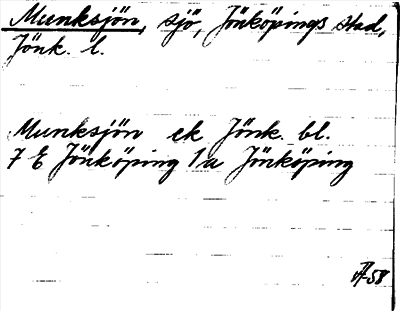 Munksjön, sjö, Jönköpings stad,
Jönk. l.
Munksjön ek Jönk. bl.
7 E Jönköping 1a Jönköping